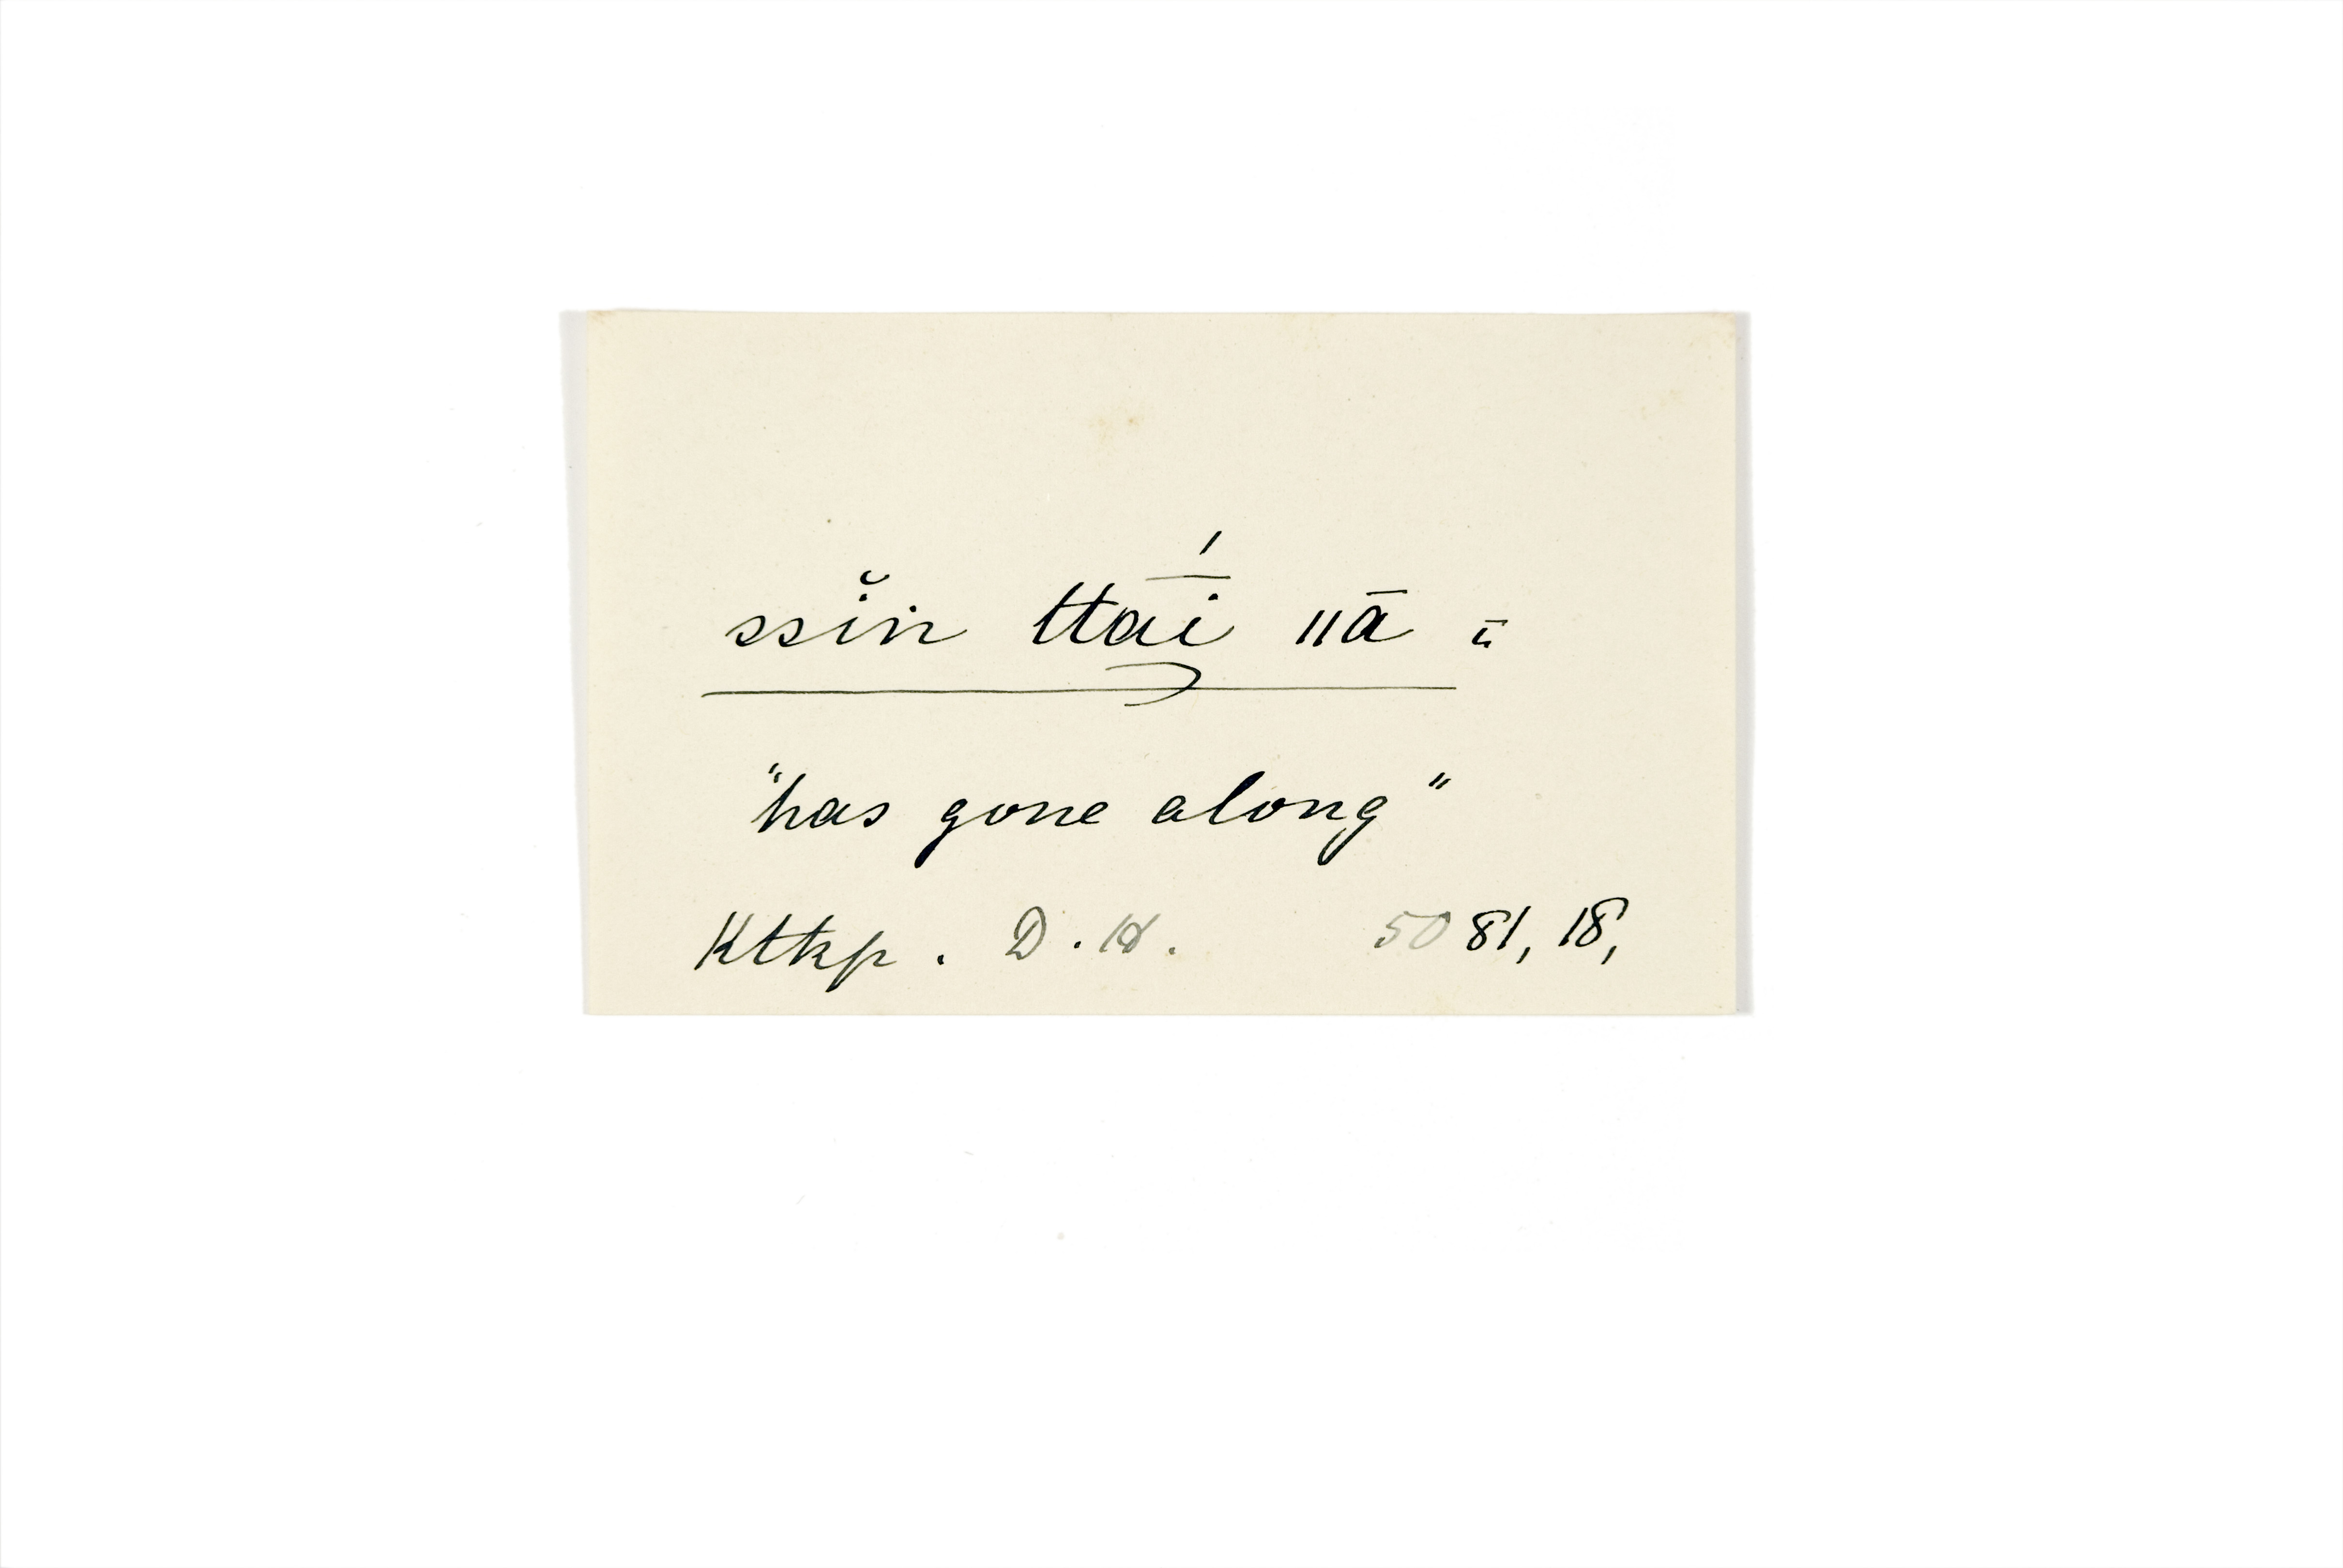 ssĭn ttā́i ııā ..
"has gone along"
Ktkp. D.H. 50 81, 18,